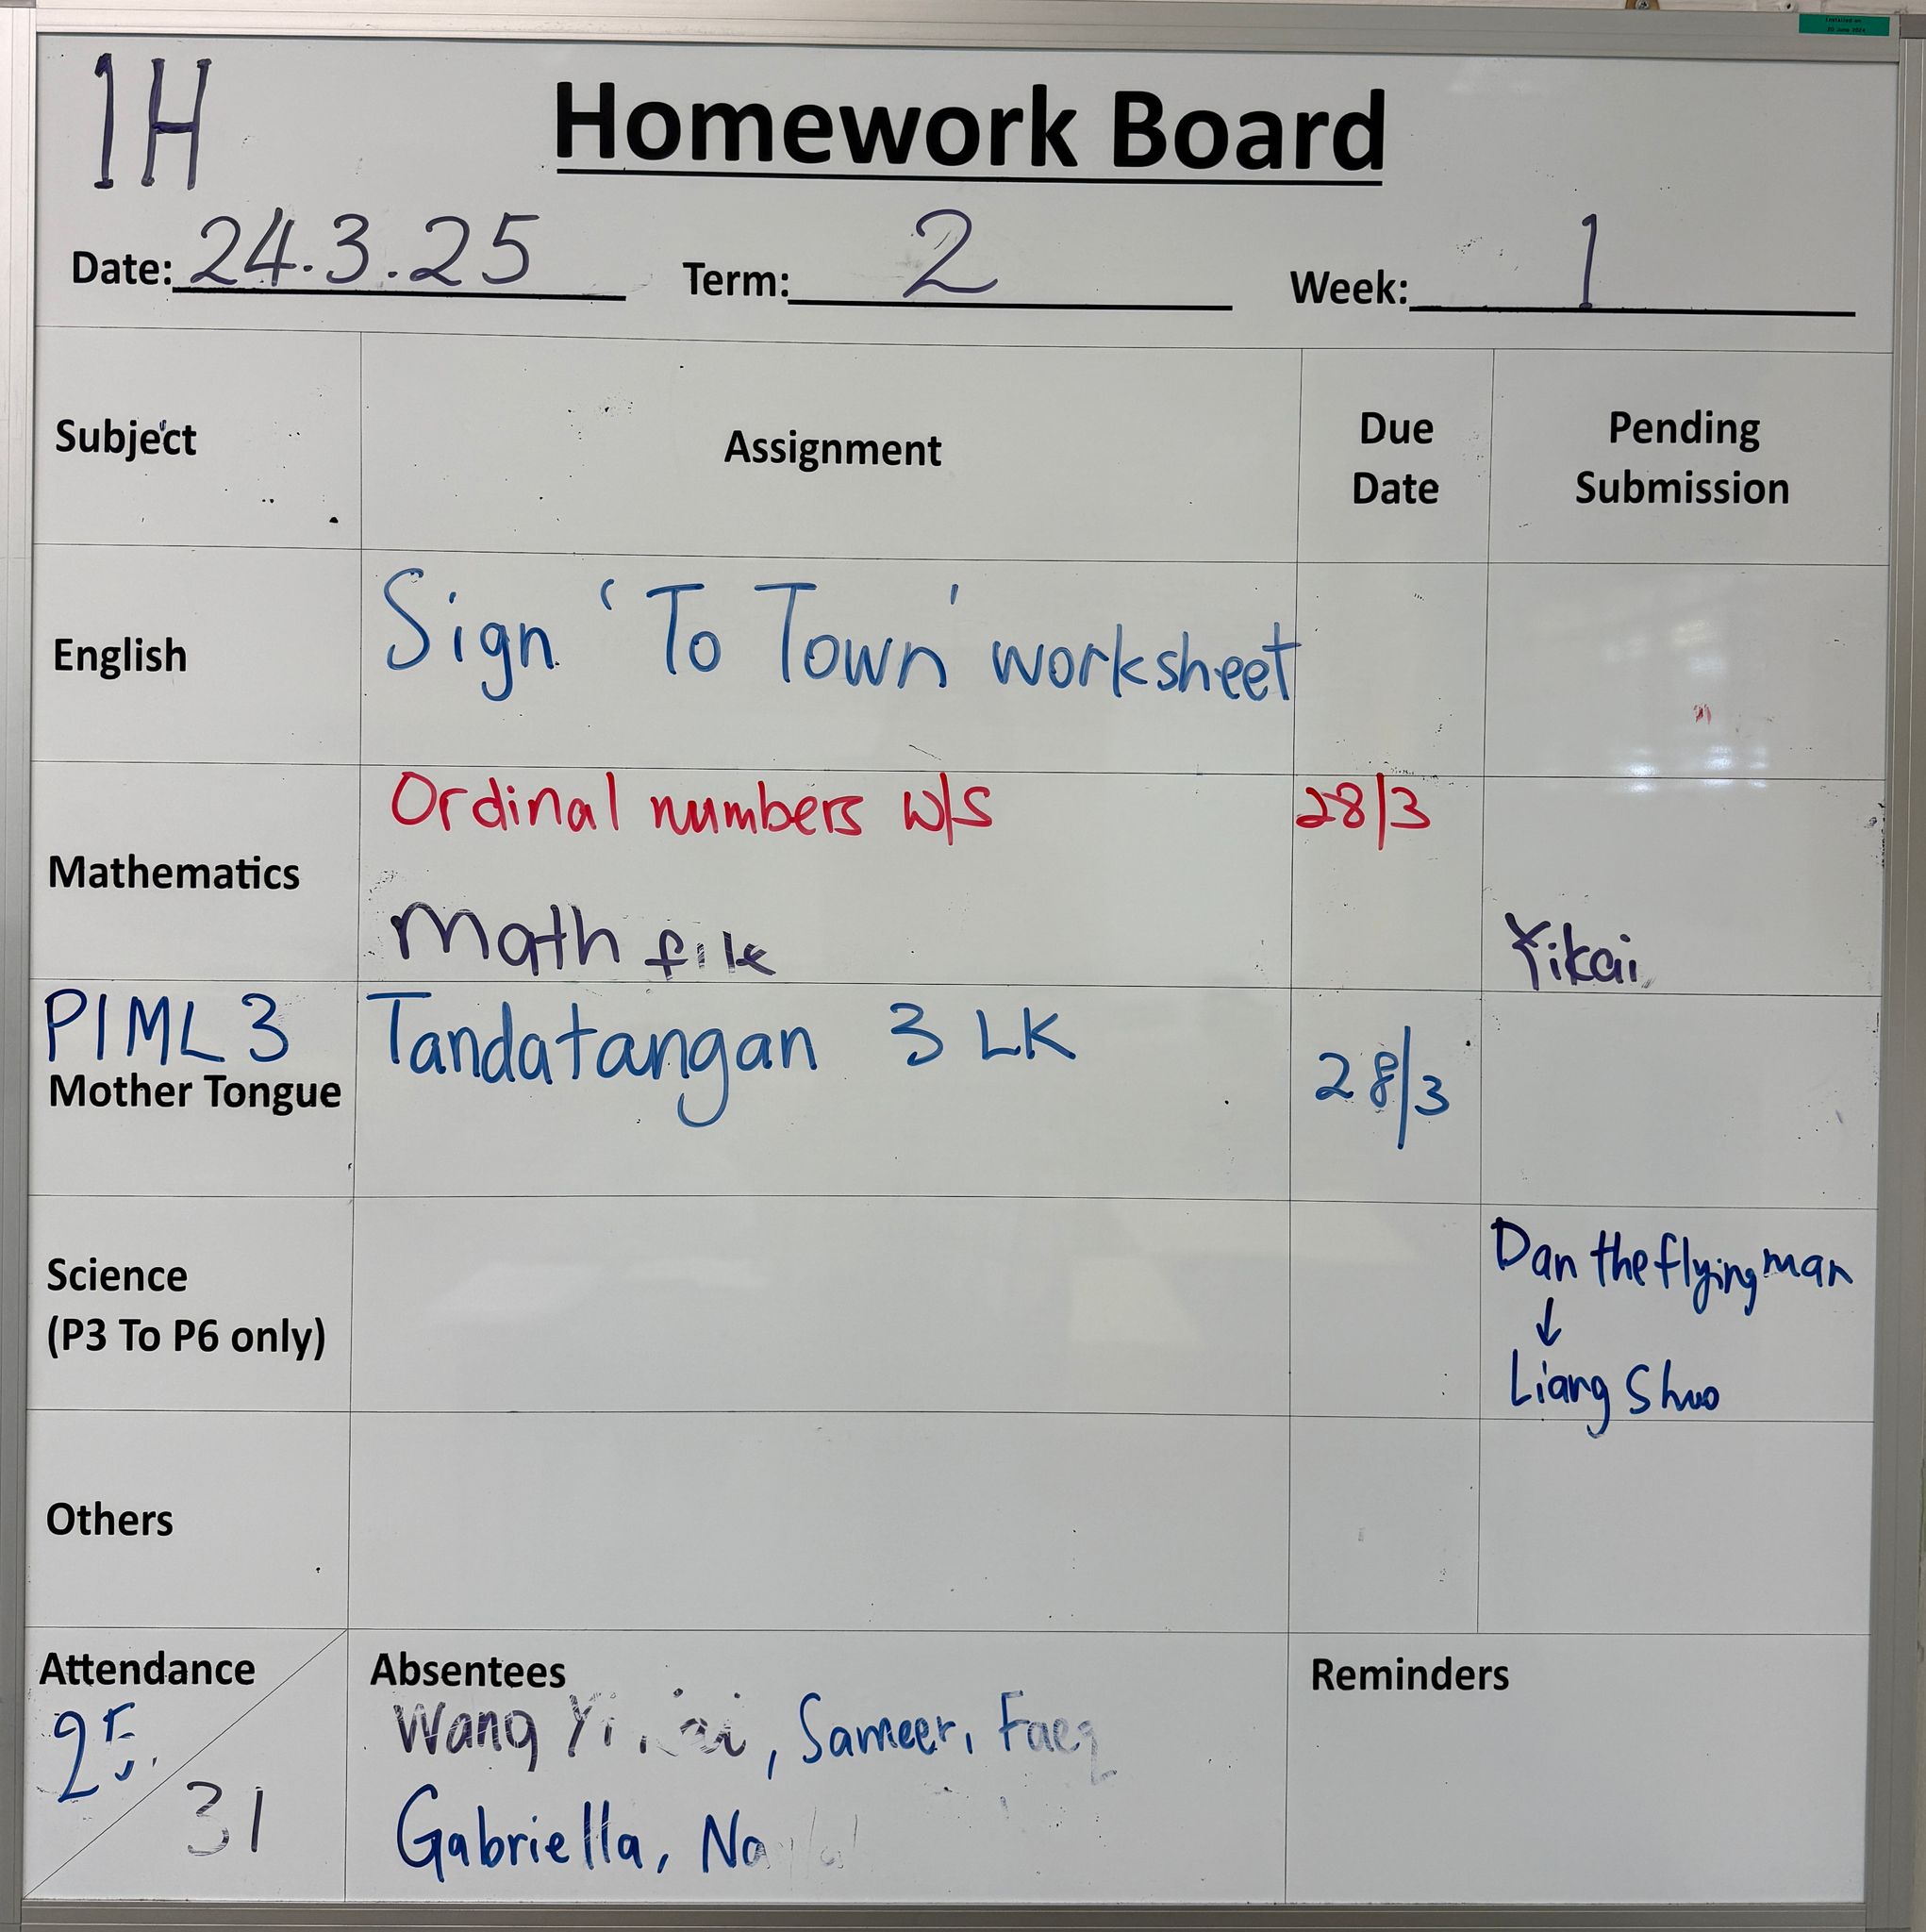 Installed on
20 June 2024
1H
Homework Board
Date: 24.3.25 Term: 2 Week: 1
Subject Assignment Due Date Pending Submission
English Sign 'To Town' worksheet
Mathematics Ordinal numbers w/s 28/3
Math file Yikai
P1ML3 Tandatangan 3 LK 28/3
Mother Tongue
Science
(P3 To P6 only)
Dan the flying man
↓
Liang Shuo
Others
Attendance Absentees Reminders
25 Wang Yikai, Sameer, Faeq
31 Gabriella,